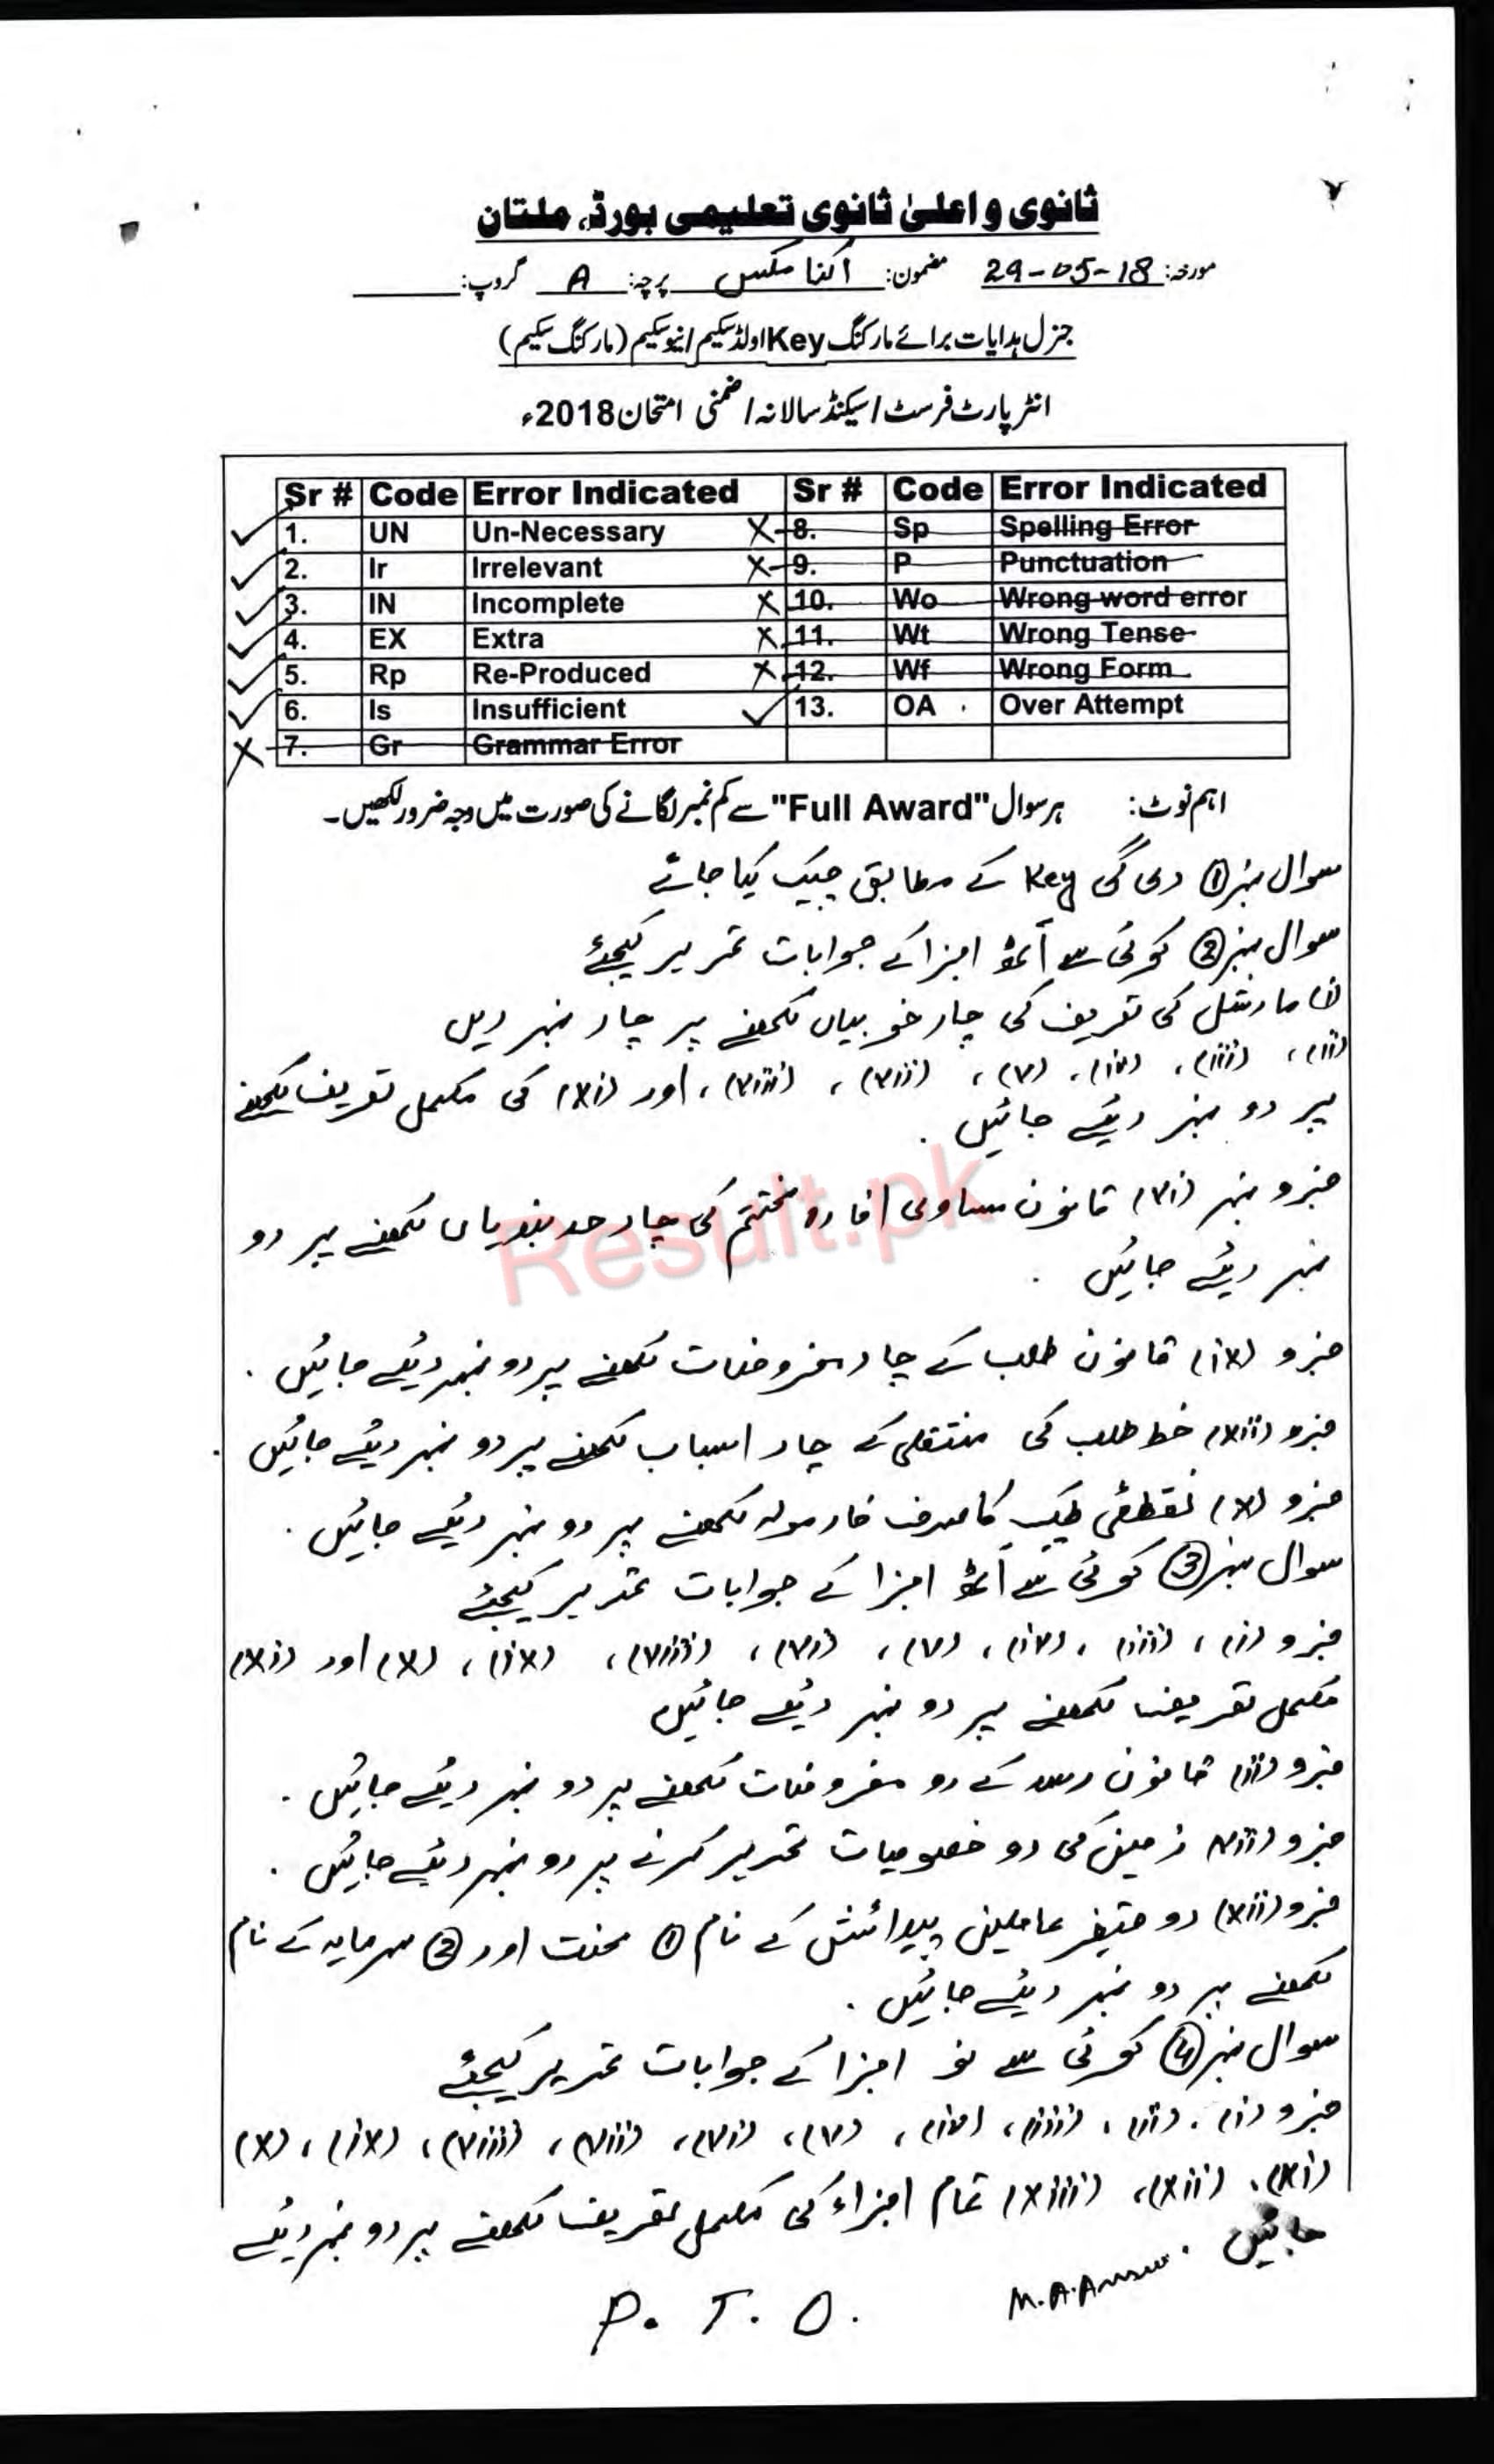 ثانوی و اعلیٰ ثانوی تعلیمی بورڈ، ملتان
مورخہ: 29-05-18 مضمون: اکنامکس پرچہ: A گروپ:
جنرل ہدایات برائے مارکنگ Key اولڈ سکیم / نیو سکیم (مارکنگ سکیم)
انٹر پارٹ فرسٹ / سیکنڈ سالانہ / ضمنی امتحان 2018ء
Sr # Code Error Indicated Sr # Code Error Indicated
1. UN Un-Necessary 8. Sp Spelling Error
2. Ir Irrelevant 9. P Punctuation
3. IN Incomplete 10. Wo Wrong word error
4. EX Extra 11. Wt Wrong Tense
5. Rp Re-Produced 12. Wf Wrong Form
6. Is Insufficient 13. OA Over Attempt
7. Gr Grammar Error
اہم نوٹ: ہر سوال "Full Award" سے کم نمبر لگانے کی صورت میں وجہ ضرور لکھیں۔
سوال نمبر ① دی گی Key کے مطابق چیک کیا جائے
سوال نمبر ② کوئی سے آٹھ اجزا کے جوابات تحریر کیجئے
(i) مارشل کی تعریف کی چار خوبیاں لکھنے پر چار نمبر دیں
(ii)، (iii)، (iv)، (v)، (vii)، (viii)، اور (xi) کی مکمل تعریف لکھنے
پر دو نمبر دیئے جائیں ۔
جزو نمبر (vi) قانون مساوی افادہ مختتم کی چار حد بندیاں لکھنے پر دو
نمبر دیئے جائیں ۔
جزو (ix) قانون طلب کے چار مفروضات لکھنے پر دو نمبر دیئے جائیں ۔
جزو (xii) خط طلب کی منتقلی کے چار اسباب لکھنے پر دو نمبر دیئے جائیں ۔
جزو (x) نقطئی لچک کا صرف فارمولہ لکھنے پر دو نمبر دیئے جائیں ۔
سوال نمبر ③ کوئی سے آٹھ اجزا کے جوابات تحریر کیجئے
جزو (i)، (iii)، (iv)، (v)، (vi)، (viii)، (ix)، (x) اور (xi)
مکمل تعریف لکھنے پر دو نمبر دیئے جائیں
جزو (ii) قانون رسد کے دو مفروضات لکھنے پر دو نمبر دیئے جائیں ۔
جزو (vii) زمین کی دو خصوصیات تحریر کرنے پر دو نمبر دیئے جائیں ۔
جزو (xii) دو متغیر عاملین پیدائش کے نام ① محنت اور ② سرمایہ کے نام
لکھنے پر دو نمبر دیئے جائیں ۔
سوال نمبر ④ کوئی سے نو اجزا کے جوابات تحریر کیجئے
جزو (i)، (ii)، (iii)، (iv)، (v)، (vi)، (vii)، (viii)، (ix)، (x)
(xi)، (xii)، (xiii) تمام اجزاء کی مکمل تعریف لکھنے پر دو نمبر دیئے
جائیں ۔
P. T. O.
Result.pk